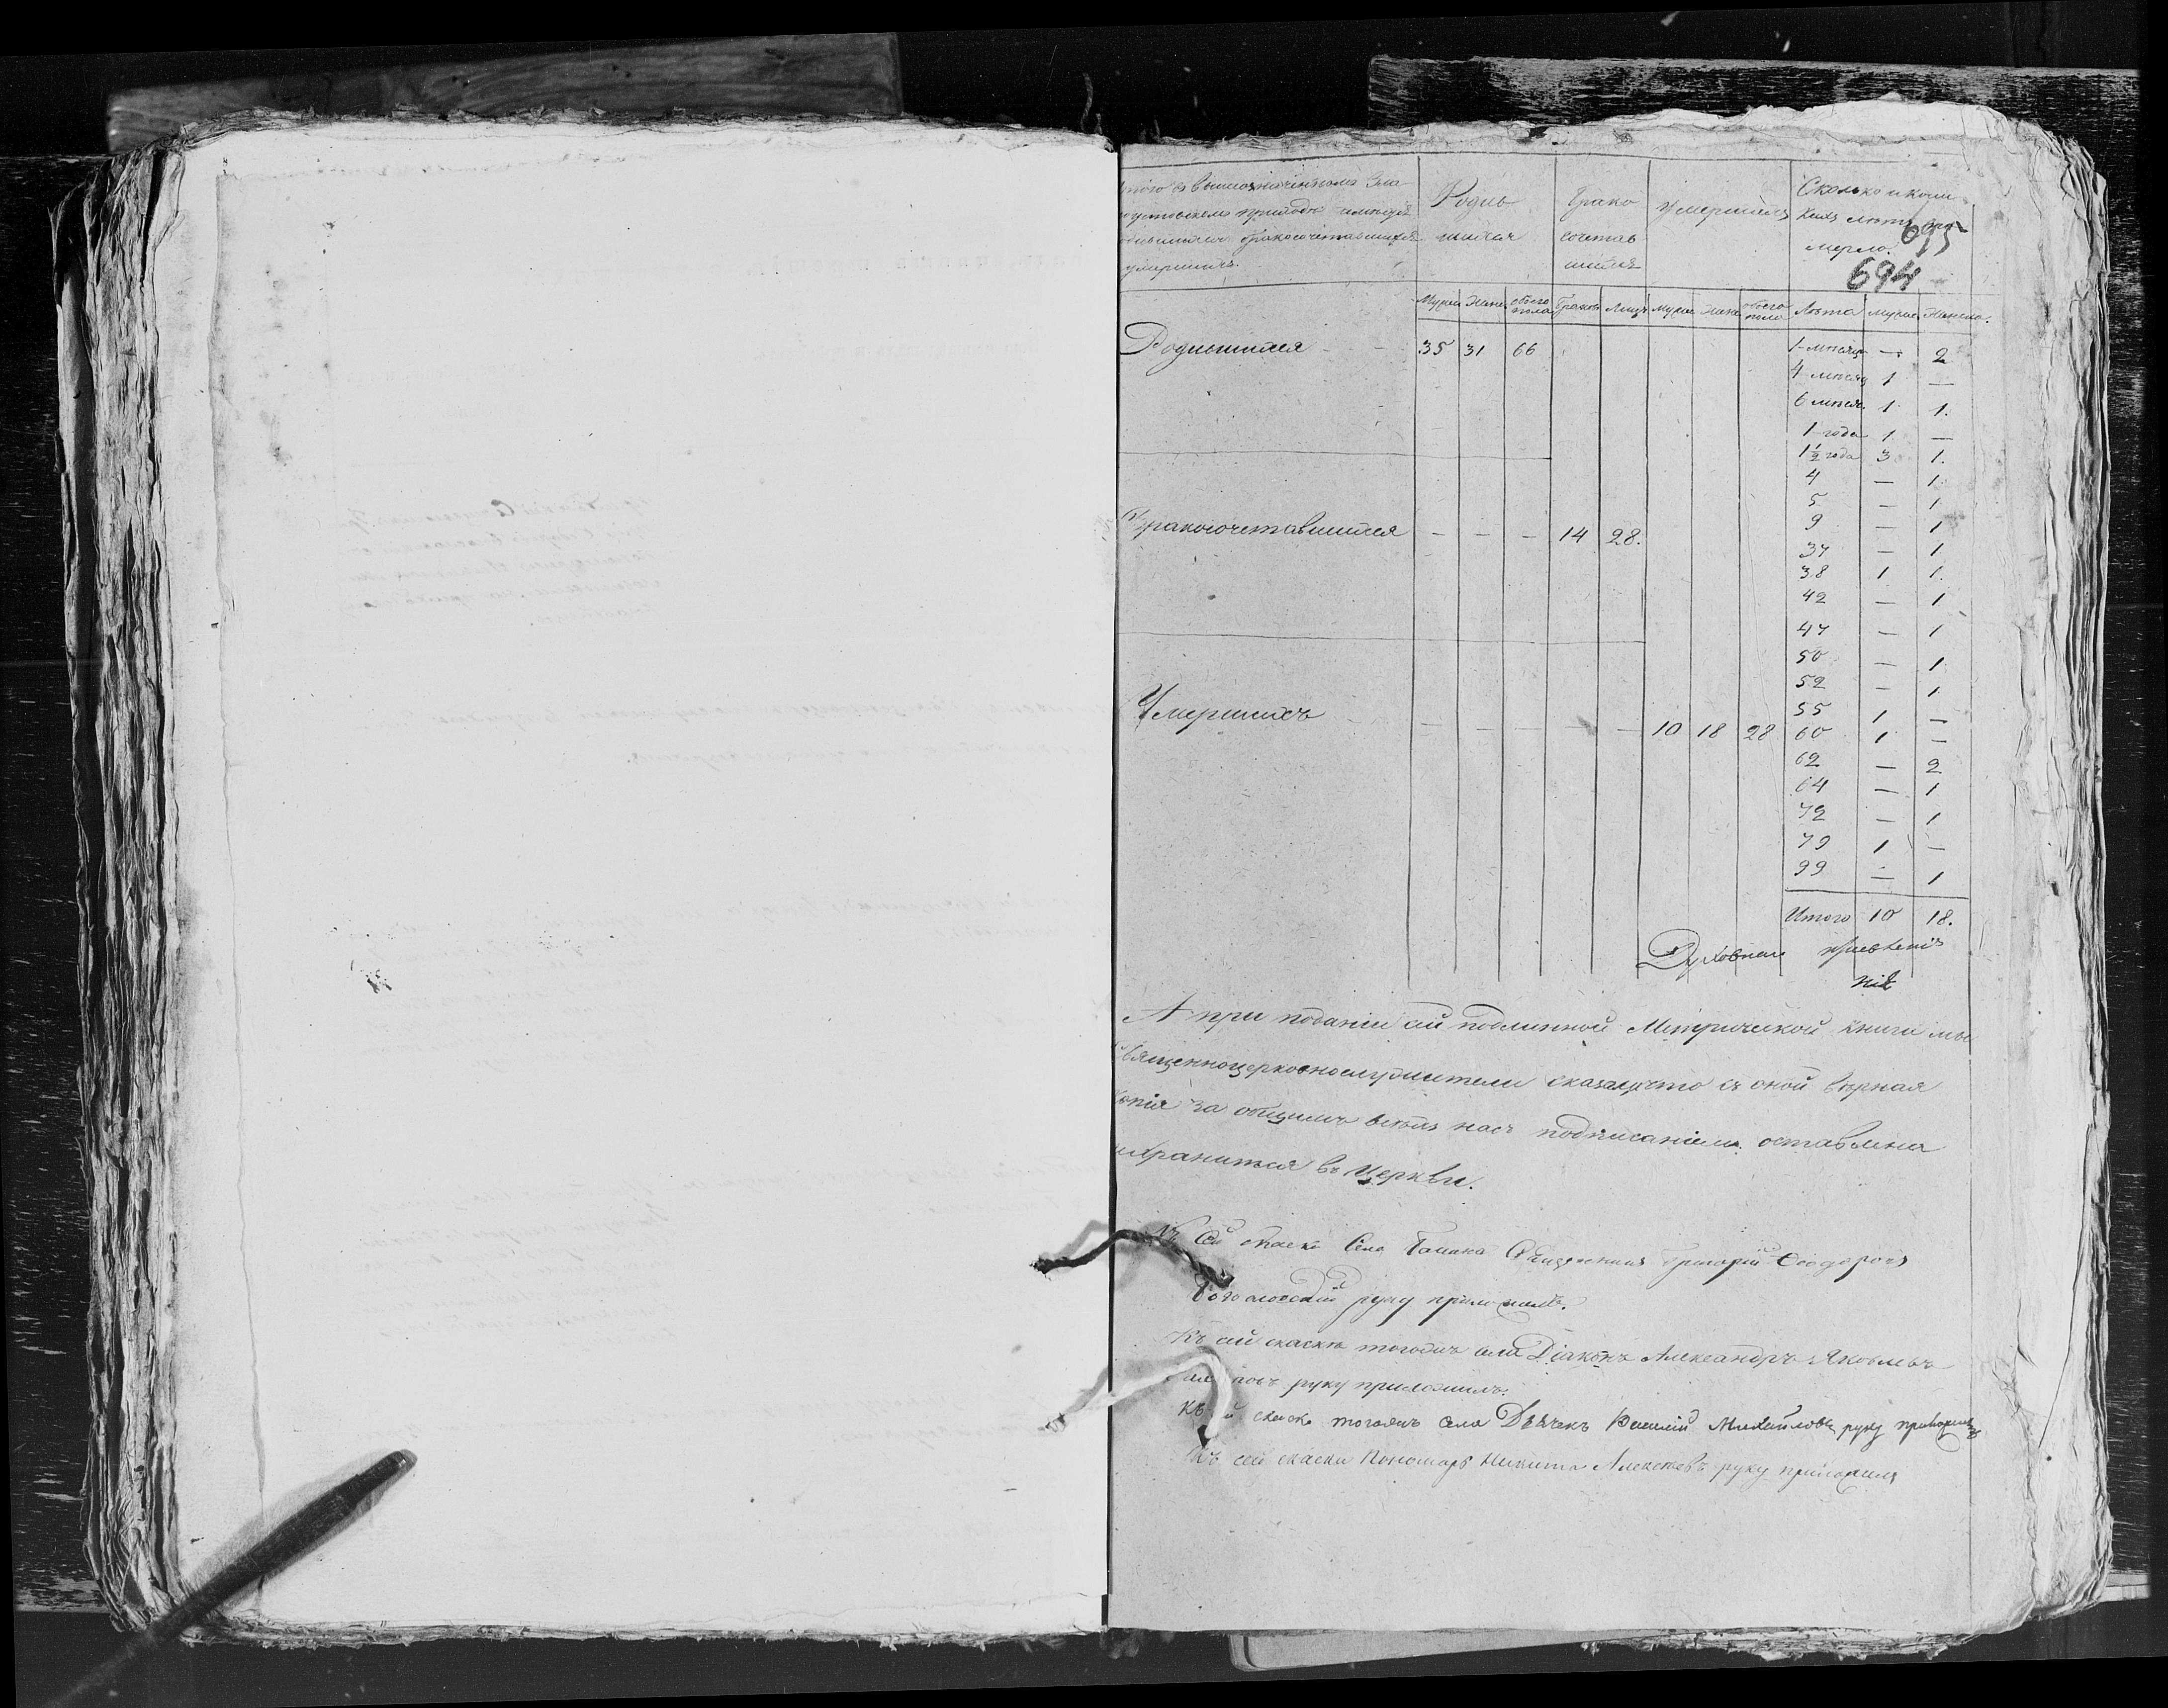 Родив
шихся
Брако
сочетав
шихся
Умершихъ
Сколько и коли
кихъ лѣтъ
мерло.
695
694
Муж Жен обоего пола Браков Лицъ Муж Жен обоего пола Лѣта Муж Женска.
Родившихся 35 31 66
1 мѣсяц — 2
4 мѣсяц 1 —
6 мѣсяц 1. 1.
1 года 1. —
1½ года 3 1.
4 — 1
5 — 1
9 — 1
Бракосочетавшихся — — — 14 28.
37 — 1
38 1 1.
42 — 1
47 — 1
50 — 1
52 — 1
55 1 —
Умершихъ — — — — — 10 18 28
60 1 —
62 — 2
64 — 1
72 — 1
79 1 —
99 — 1
Итого 10 18.
Духовныи
А при поданіи сей подлинной Метрической книги мы
священноцерковнослужители сказали что съ оной вѣрная
копія за общимъ всѣхъ насъ подписаніемъ оставлена
и хранится въ Церкви.
Къ сей скаске Села Священник Григорій Ѳеодоровъ
руку приложилъ.
Къ сей скаскѣ тогожъ села Діаконъ Александръ Яковлевъ
руку приложилъ.
Къ сей скаске тогожъ села Дьячекъ Василій Михайловъ руку приложилъ
Къ сей скаски Пономарь Никита Алексѣевъ руку приложилъ